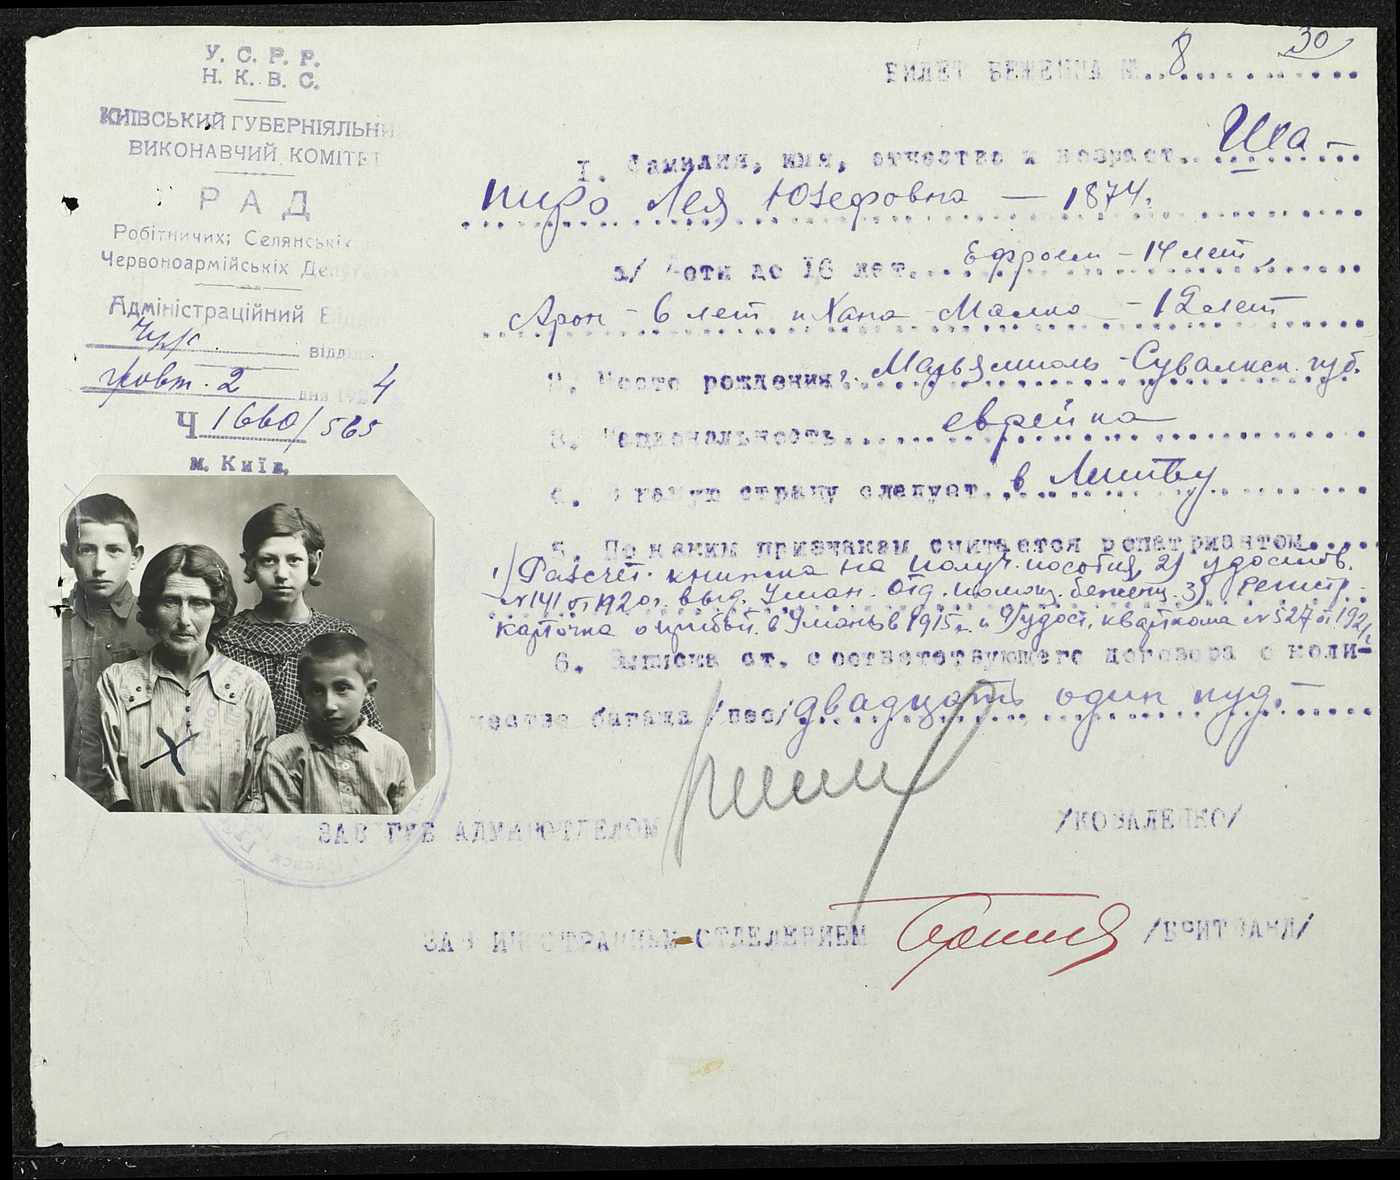 У. С. Р. Р.
Н. К. В. С.
КИЇВСЬКИЙ ГУБЕРНІЯЛЬНИ
ВИКОНАВЧИЙ КОМІТЕТ
РАД
Робітничих, Селянських
Червоноармійських Депутатів
Адміністраційний Відділ
відділ
жовт. 2 дня 1924
Ч 1660/565
м. Київ.
30
БИЛЕТ БЕЖЕНЦА № 8
I. Фамилия, имя, отчество и возраст. Шка-
пиро Лея Юзефовна — 1874.
а/ Дети до 16 лет. Ефроим - 14 лет,
Арон - 6 лет и Хана-Малка - 12 лет
2. Место рождения, Марьямполь - Сувалкск. губ.
3. Национальность еврейка
4. В какую страну следует в Литву
5. По каким признакам считается репатриантом
1) Разсчет. книжка на получ. пособия, 2) удостов.
№ 141 от 1920 г. выд. Уман. Отд. помощ. беженц. 3) регистр.
карточка о прибыт. в Умань в 1915 г. и 4) удост. кварткома № 527 от 1921
6. Выписка ст. соответствующего договора о коли-
честве багажа /вес/ двадцать один пуд.
ЗАВ ГУБ АДМИНОТДЕЛОМ /КОВАЛЕНКО/
ЗАВ ИНОСТРАННЫМ ОТДЕЛЕНИЕМ /БРИТВАНД/